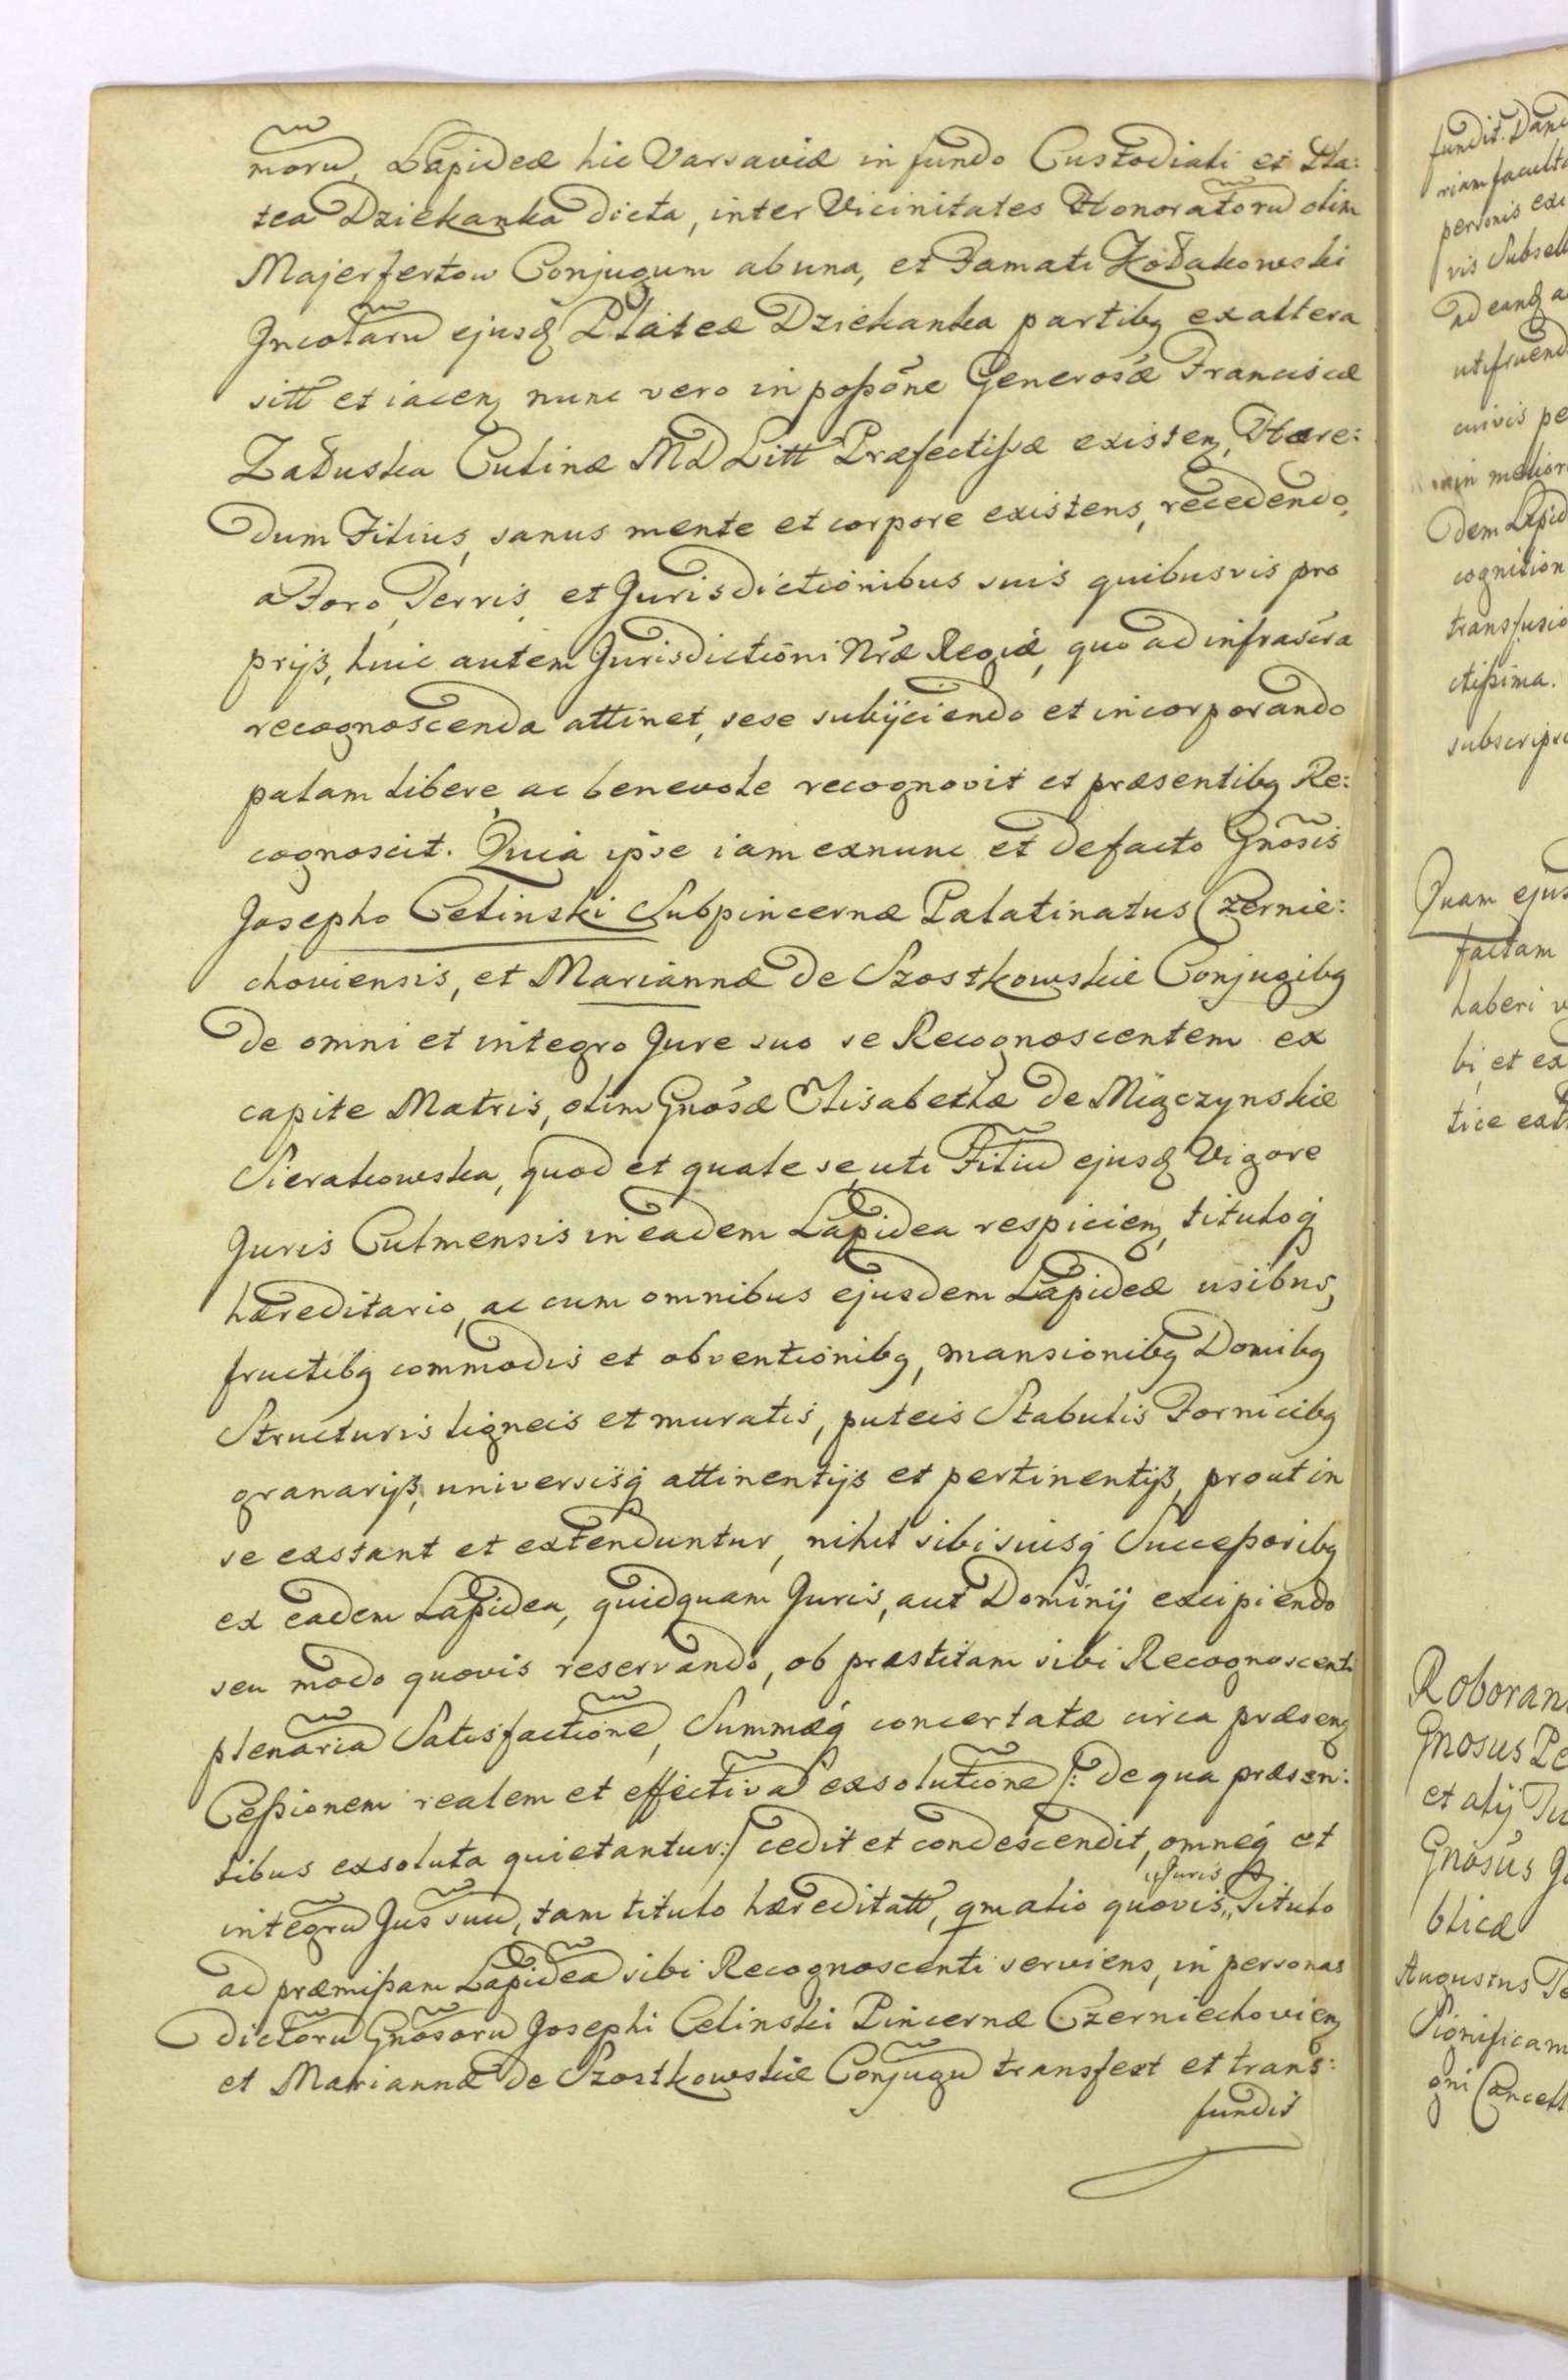 moru, Lapideæ hic Varsaviæ in fundo Custodiali et Pla:
tea Dziekanka dicta, inter Vicinitates Honoratoru olim
Majerfertow Conjugum ab una, et Famati Zołakowski
Incolaru ejusq Plateæ Dziekanka partibq ex altera
sitt et iacen nunc vero in poßone Generosæ Franciscæ
Załuska Culinæ MD Litt Præfectißæ existen, Hære:
dum Filius, sanus mente et corpore existens, recedendo,
a Foro, Terris, et Jurisdictionibus suis quibusvis pro
prijs, huic autem Jurisdictioni Nræ Regiæ, quo ad infrascra
recognoscenda attinet, sese subijciendo et incorporando
palam libere, ac benevole recognovit et præsentibq Re:
cognoscit. Quia ipse iam ex nunc et de facto Gnosis
Josepho Celinski Subpincernæ Palatinatus Czernie:
choviensis, et Mariannæ de Szostkowskie Conjugibq
De omni et integro Jure suo se Recognoscentem ex
capite Matris, olim Gnosæ Elisabethæ de Miączynskie
Sierakowska, quod et quale se, uti Filiu ejusq Vigore
Juris Culmensis in eadem Lapidea respicien, tituloq
hæreditario, ac cum omnibus ejusdem Lapideæ usibus,
fructibq commodis et obventionibq, mansionibq Domibq
Structuris ligneis et muratis, puteis Stabulis Fornicibq
granarijs, universisq attinentijs et pertinentijs, prout in
se exstant et extenduntur, nihil sibi suisq Succeßoribq
ex eadem Lapidea, quidquam Juris, aut Dominij excipiendo
seu modo quovis reservando, ob præstitam sibi Recognoscenti
plenaria Satisfactione, Summæq concertatæ circa præsen
Ceßionem realem et effectiva exsolutione /: de qua præsen:
tibus exsoluta quietantur:/ cedit et condescendit, omneq et
integru Jus suu, tam titulo hæreditatt, qm alio quovis Juris titulo
ad præmißam Lapidea sibi Recognoscenti serviens, in personas
Dictoru Gnosoru Josephi Celinski Pincernæ Czerniechovien
et Mariannæ de Szostkowskie Conjugu transfert et trans:
fundit
fundit. Dan
riam faculta
personis exi
vis Subsell
ad eanq a
utifruend
cuivis pe
meliore
dem Lapid
cognition
transfusio
ctißima.
subscripsi
Quam ejus
factam
haberi v
bi, et ex
tice ext
Roboran
Gnosus Pe
et alij Tu
Gnosus J
blicæ
Augustus Te
Significam
gni Cancell